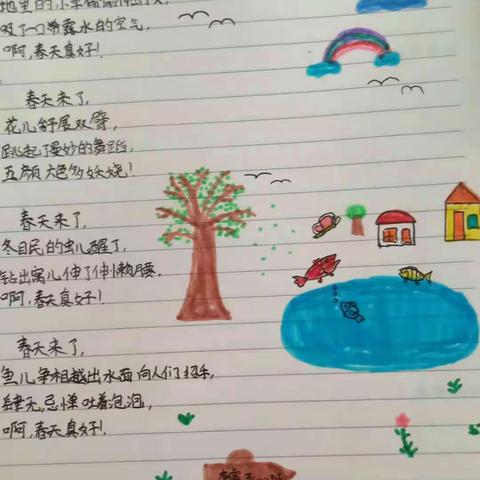 地里的小草偷偷
吸了一口带露水的空气,
啊,春天真好!
春天来了,
花儿舒展双臂,
跳起了曼妙的舞蹈,
五颜六色多妖娆!
春天来了,
冬眠的虫儿醒了,
钻出窝儿伸了伸懒腰,
啊,春天真好!
春天来了,
鱼儿争相越出水面向人们招手,
肆无忌惮吐着泡泡,
啊,春天真好!